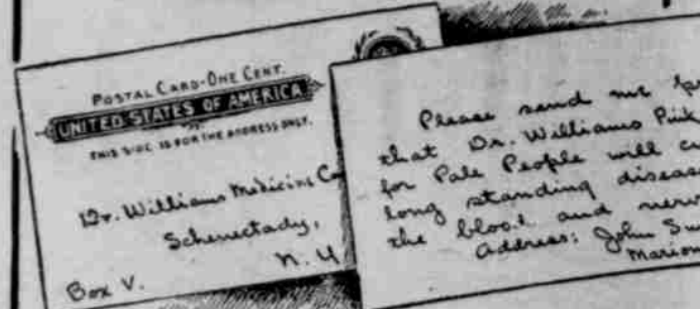 POSTAL CARD-ONE CENT.
UNITED STATES OF AMERICA
THIS SIDE IS FOR THE ADDRESS ONLY.
Dr. Williams Medicine Co
Schenectady,
N. Y
Box V.
Please send me
that Dr. Williams Pink
for Pale People will
long standing diseas
the blood and
Address: John
Marion